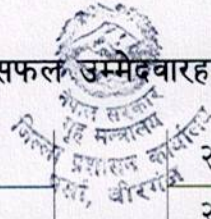 सफल उम्मेदवारह
नेपाल सरकार
गृह मन्त्रालय
जिल्ला प्रशासन कार्यालय
पर्सा, वीरगंज
२